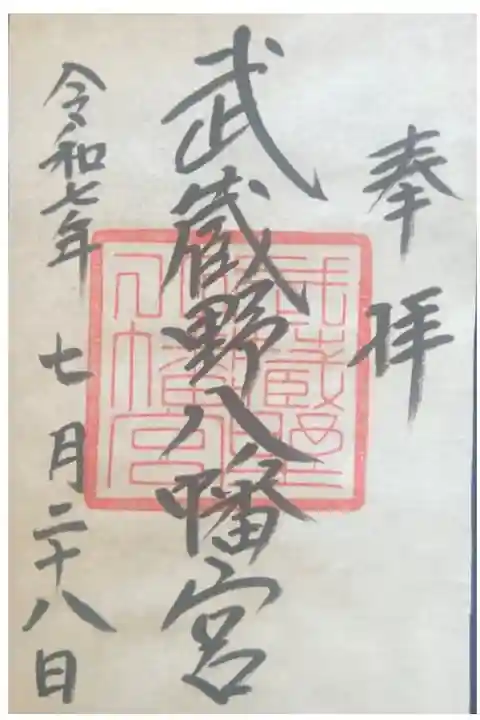 奉拝
武蔵野八幡宮
令和七年七月二十八日
武蔵野
八幡宮